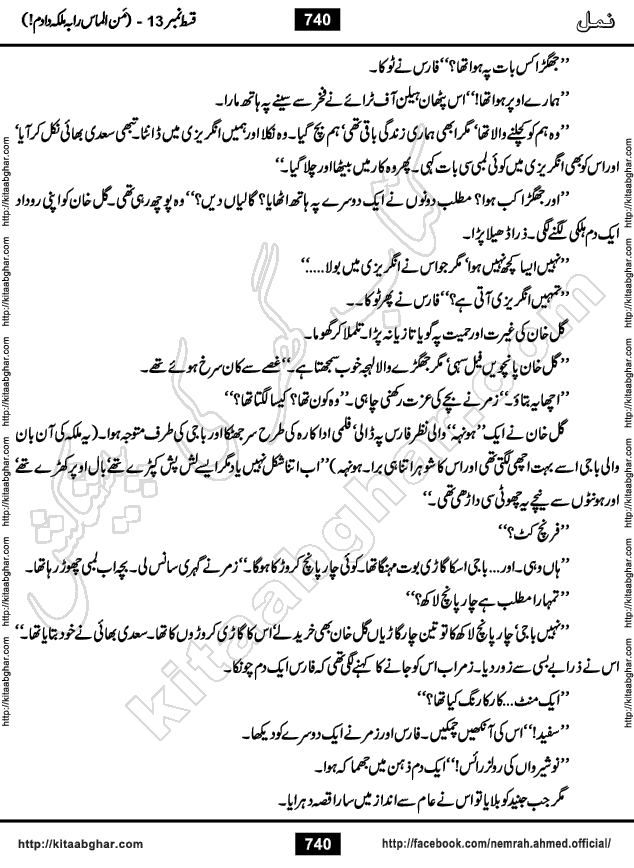 نمل
740
قسط نمبر 13 - (مَن الماس را بہ ملکہ دادم!)
’’جھگڑا کس بات پہ ہوا تھا؟‘‘ فارس نے ٹوکا۔
’’ہمارے اوپر ہوا تھا!‘‘ اس پٹھان ہیلن آف ٹرائے نے فخر سے سینے پہ ہاتھ مارا۔
’’وہ ہم کو کچلنے والا تھا‘ مگر ابھی ہماری زندگی باقی تھی‘ ہم بچ گیا۔ وہ نکلا اور ہمیں انگریزی میں ڈانٹا۔ تبھی سعدی بھائی نکل کر آیا‘
اور اس کو بھی انگریزی میں کوئی لمبی سی بات کہی۔ پھر وہ کار میں بیٹھا اور چلا گیا۔‘‘
’’اور جھگڑا کب ہوا؟ مطلب دونوں نے ایک دوسرے پہ ہاتھ اٹھایا؟ گالیاں دیں؟‘‘ وہ پوچھ رہی تھی۔ گل خان کو اپنی روداد
ایک دم ہلکی لگنے لگی۔ ذرا ڈھیلا پڑا۔
’’نہیں ایسا کچھ نہیں ہوا‘ مگر جو اس نے انگریزی میں بولا.....‘‘
’’تمہیں انگریزی آتی ہے؟‘‘ فارس نے پھر ٹوکا۔۔
گل خان کی غیرت اور حمیت پہ گویا تازیانہ پڑا۔ تلملا کر گھوما۔
’’گل خان پانچویں فیل سہی‘ مگر جھگڑے والا لہجہ خوب سمجھتا ہے۔‘‘ غصے سے کان سرخ ہوئے تھے۔
’’اچھا یہ بتاؤ۔‘‘ زمر نے بچے کی عزت رکھنی چاہی۔ ’’وہ کون تھا؟ کیسا لگتا تھا؟‘‘
گل خان نے ایک ’’ہونہہ‘‘ والی نظر فارس پہ ڈالی‘ فلمی اداکارہ کی طرح سر جھٹکا اور باجی کی طرف متوجہ ہوا۔ (یہ ملکہ کی آن بان
والی باجی اسے بہت اچھی لگتی تھی اور اس کا شوہر اتنا ہی برا۔ ہونہہ) ’’اب اتنا شکل نہیں یاد مگر ایسے لش پش کپڑے تھے‘ بال اوپر کھڑے تھے‘
اور ہونٹوں سے نیچے یہ چھوٹی سی داڑھی تھی۔‘‘
’’فرنچ کٹ؟‘‘
’’ہاں وہی۔ اور... باجی اسکا گاڑی بوت مہنگا تھا۔ کوئی چار پانچ کروڑ کا ہوگا۔‘‘ زمر نے گہری سانس لی۔ بچہ اب لمبی چھوڑ رہا تھا۔
’’تمہارا مطلب ہے چار پانچ لاکھ؟‘‘
’’نہیں باجی‘ چار پانچ لاکھ کا تو تین چار گاڑیاں گل خان بھی خرید لے‘ اس کا گاڑی کروڑوں کا تھا۔ سعدی بھائی نے خود بتایا تھا۔‘‘
اس نے ذرا بے بسی سے زور دیا۔ زمر اب اس کو جانے کا کہنے لگی تھی کہ فارس ایک دم چونکا۔
’’ایک منٹ... کار کا رنگ کیا تھا؟‘‘
’’سفید!‘‘ اس کی آنکھیں چمکیں۔ فارس اور زمر نے ایک دوسرے کو دیکھا۔
’’نوشیرواں کی رولز رائس!‘‘ ایک دم ذہن میں جھماکہ ہوا۔
مگر جب جنید کو بلایا تو اس نے عام سے انداز میں سارا قصہ دہرایا۔
http://kitaabghar.com
http://kitaabghar.com
http://kitaabghar.com
http://kitaabghar.com
http://kitaabghar.com
http://kitaabghar.com
http://kitaabghar.com
http://kitaabghar.com
http://kitaabghar.com
http://kitaabghar.com
http://kitaabghar.com
http://kitaabghar.com
کتاب گھر کی پیشکش
kitaabghar.com
http://kitaabghar.com
740
http://facebook.com/nemrah.ahmed.official/